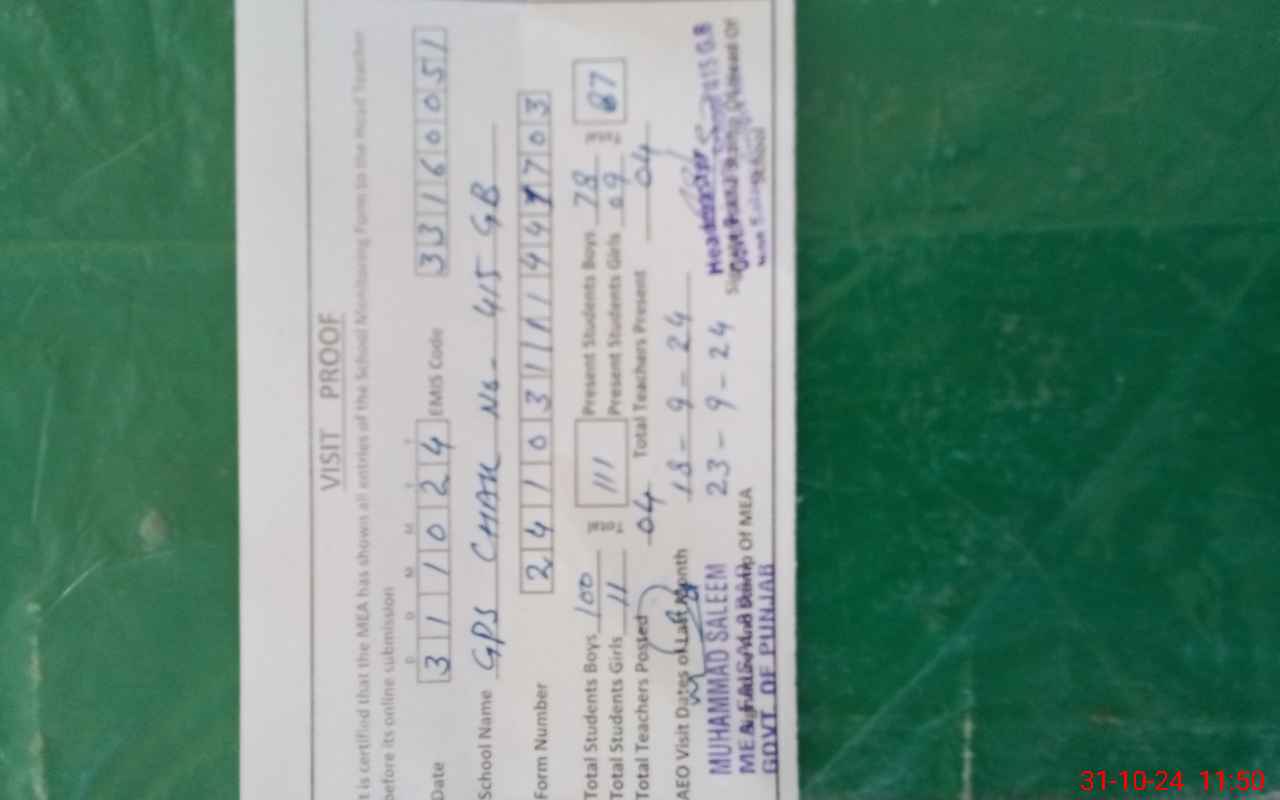 VISIT PROOF
t is certified that the MEA has shown all entries of the School Monitoring Form to the Head Teacher
before its online submission
D D M M Y Y
Date 31 10 24 EMIS Code 33160051
School Name GPS CHAK No- 415 GB
Form Number 24103111447703
Total Students Boys 100 111 Present Students Boys 78 87
Total Students Girls 11 Present Students Girls 09
Total Teachers Posted 04 Total Teachers Present 04
AEO Visit Dates of Last Month 18-9-24
23-9-24
MUHAMMAD SALEEM
MEA FAISALABAD
Of MEA
GOVT. OF PUNJAB
415 G.B
School
31-10-24 11:50